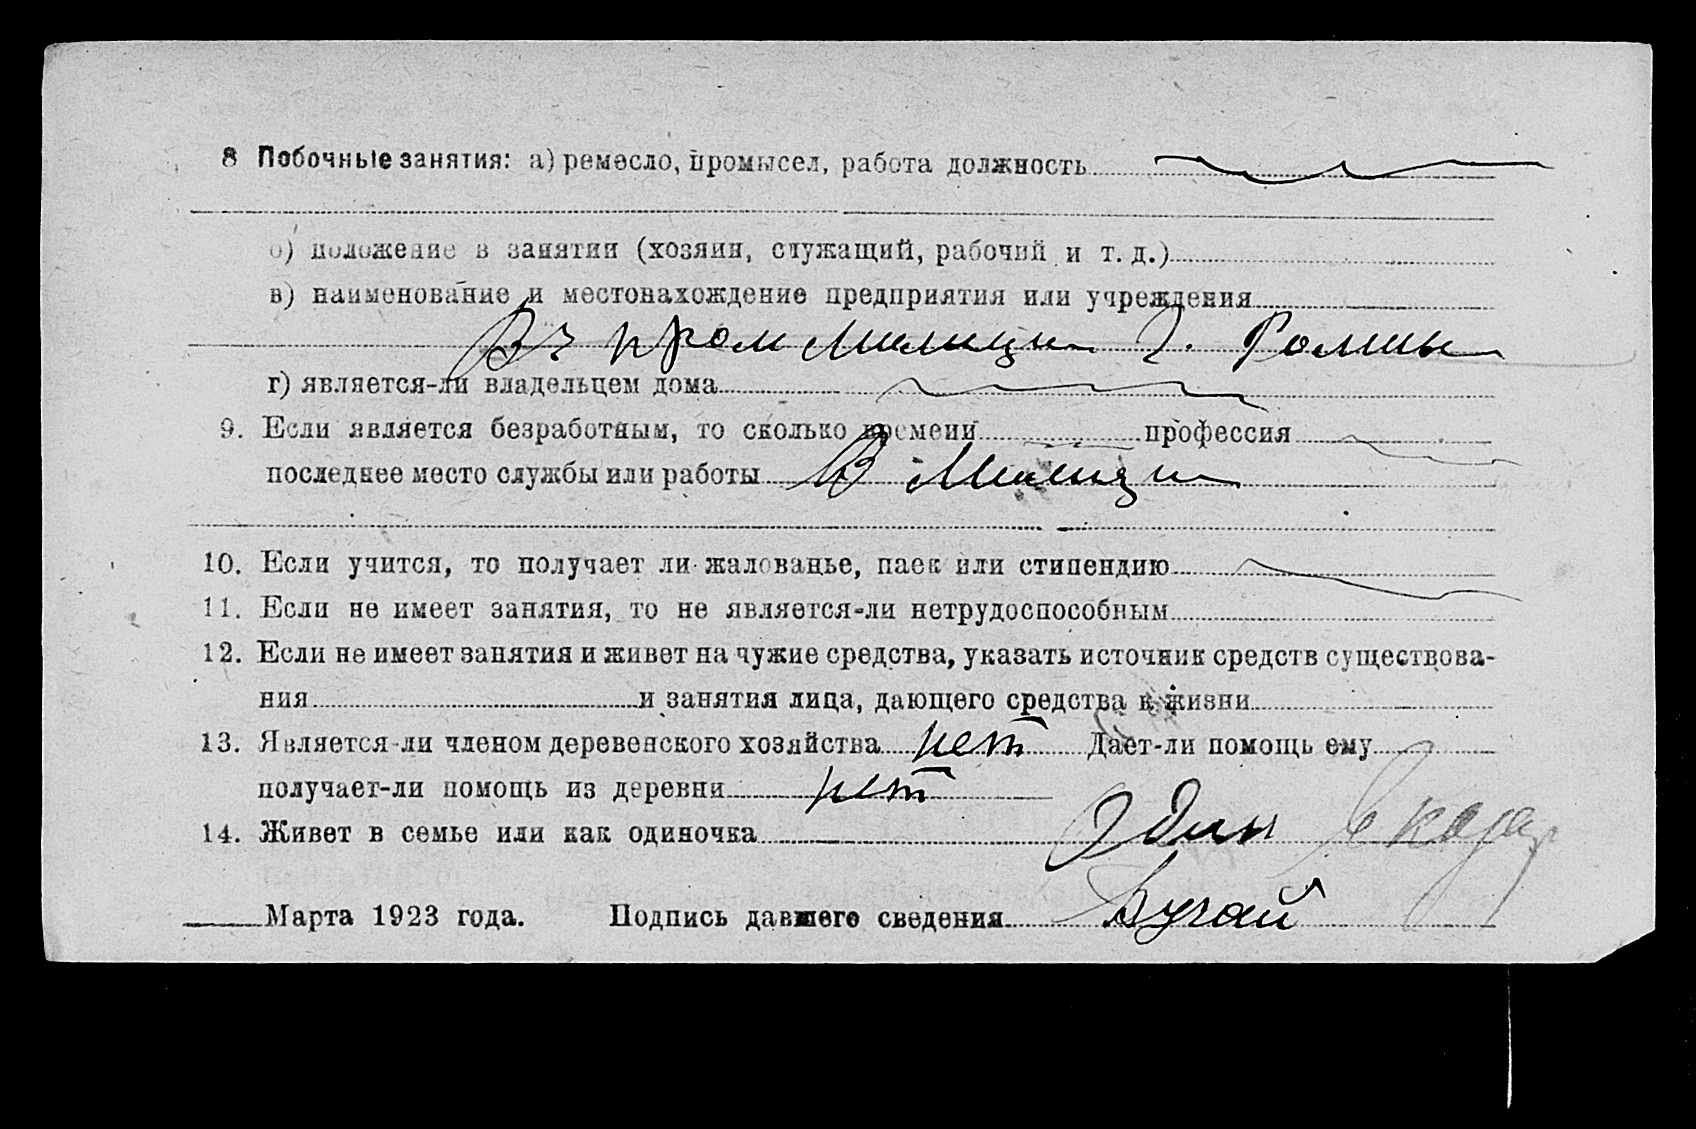 8 Побочные занятия: а) ремесло, промысел, работа должность
б) положение в занятии (хозяин, служащий, рабочий и т. д.)
в) наименование и местонахождение предприятия или учреждения
пром милиции г. Ромны
г) является-ли владельцем дома
9. Если является безработным, то сколько времени профессия
последнее место службы или работы В Милиции
10. Если учится, то получает ли жалованье, паек или стипендию
11. Если не имеет занятия, то не является-ли нетрудоспособным
12. Если не имеет занятия и живет на чужие средства, указать источник средств существова-
ния и занятия лица, дающего средства к жизни
13. Является-ли членом деревенского хозяйства нет Дает-ли помощь ему
получает-ли помощь из деревни нет
14. Живет в семье или как одиночка Один
Марта 1923 года. Подпись давшего сведения Бугай